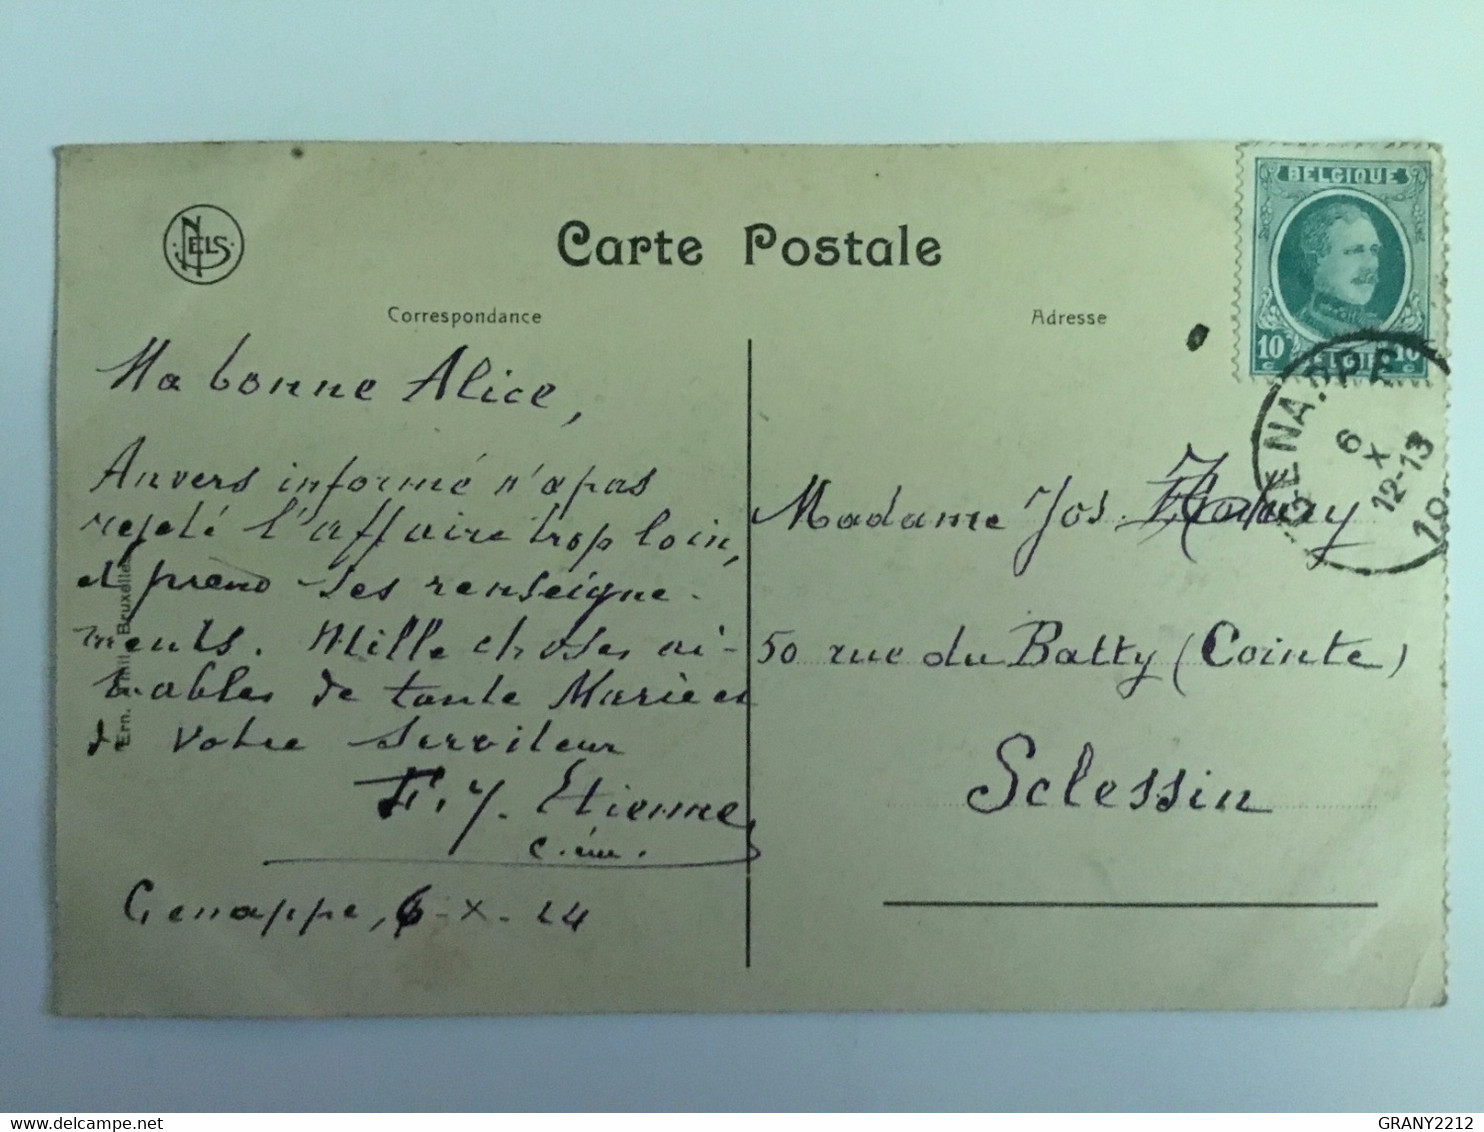 NELS
Carte Postale
Correspondance
Adresse
BELGIQUE
10
10
BELGIË
GENAPPE
6
X
12-13
19
Ma bonne Alice,
Anvers informé n'a pas
rejeté l'affaire trop loin,
et prend ses renseigne-
ments. Mille choses ai-
mables de tante Marie et
de votre serviteur
F. J. Etienne
Genappe, 6-X-24
Madame Jos.
50 rue du Batty (Cointe)
Sclessin
Ern. Thill, Bruxelles
GRANY2212